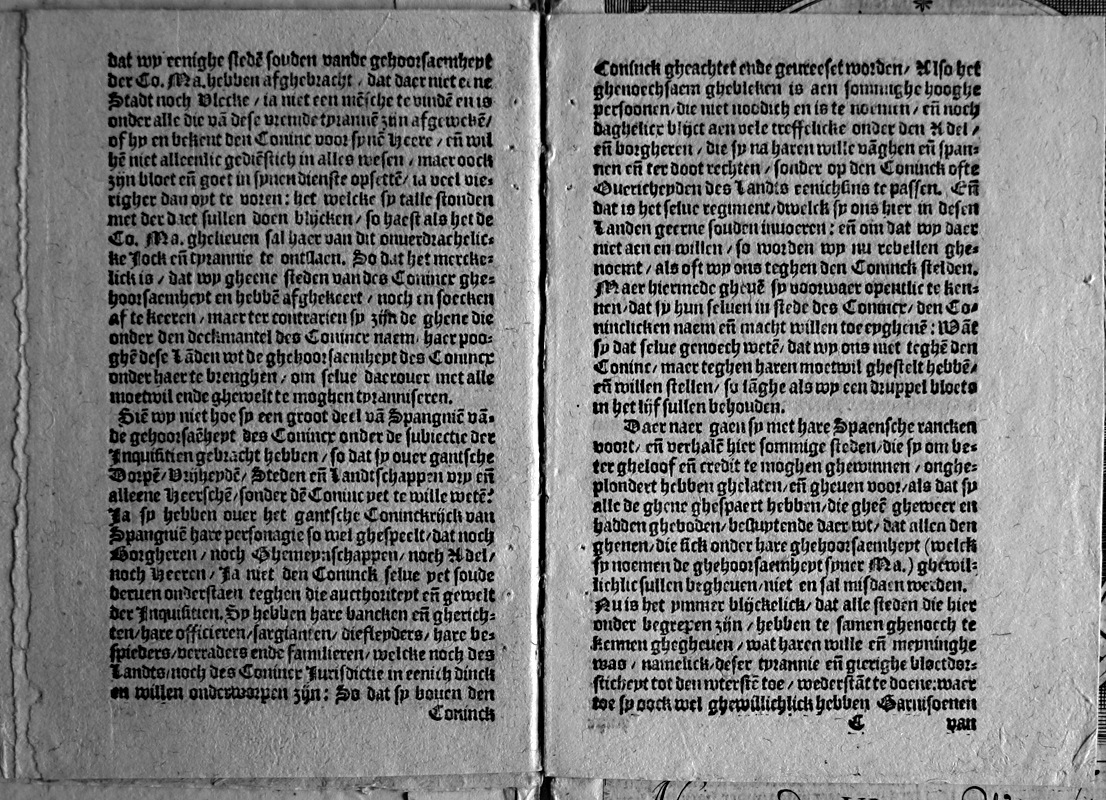 dat wy eenighe stedē souden vande gehoorsaemheyt
der Co. Ma. hebben afghebracht / dat daer niet eene
Stadt noch Vlecke / ia niet een mēsche te vindē en is
onder alle die vā dese vremde tyranniē zijn afgewekē /
of hy en bekent den Coninc voor synē Heere / eñ wil
hē niet alleenlic gediēstich in alles wesen / maer oock
zijn bloet eñ goet in synen dienste opsettē / ia veel vie⸗
righer dan oyt te voren : het welcke sy talle stonden
met der daet sullen doen blijcken / so haest als het de
Co. Ma. ghelieuen sal haer van dit onuerdrachelic⸗
ke Jock eñ tyrannie te ontslaen. So dat het mercke⸗
lick is / dat wy gheene steden van des Conincx ghe⸗
hoorsaemheyt en hebbē afghekeert / noch en soecken
af te keeren / maer ter contrarien sy zijn de ghene die
onder den deckmantel des Conincx naem / haer poo⸗
ghē dese Lāden wt de ghehoorsaemheyt des Conincx
onder haer te brenghen / om selue daerouer met alle
moetwil ende ghewelt te moghen tyranniseren.
Siē wy niet hoe sy een groot deel vā Spangniē vā⸗
de gehoorsaēheyt des Conincx onder de subiectie der
Inquisitien gebracht hebben / so dat sy ouer gantsche
Dorpē / Vrijheydē / Steden eñ Landtschappen vry eñ
alleene Heerschē / sonder dē Coninc yet te wille wetē?
Ja sy hebben ouer het gantsche Coninckrijck van
Spangniē hare personagie so wel ghespeelt / dat noch
Borgheren / noch Ghemeynschappen / noch Adel /
noch Heeren / Ja niet den Coninck selue yet soude
deruen onderstaen teghen die aucthoriteyt eñ gewelt
der Inquisitien. Sy hebben hare bancken eñ gherich⸗
ten / hare officieren / sargianten / diefleyders / hare be⸗
spieders / verraders ende familieren / welcke noch des
Landts / noch des Conincx Jurisdictie in eenich dinck
en willen onderworpen zijn : So dat sy bouen den
Coninck
Coninck gheachtet ende geureeset worden / Also het
ghenoechsaem ghebleken is aen sommighe hooghe
persoonen / die niet noodich en is te noemen / eñ noch
daghelicx blijct aen vele treffelicke onder den Adel /
eñ borgheren / die sy na haren wille vāghen eñ span⸗
nen eñ ter doot rechten / sonder op den Coninck ofte
Ouericheyden des Landts eenichsins te passen. Eñ
dat is het selue regiment / dwelck sy ons hier in desen
Landen geerne souden inuoeren : eñ om dat wy daer
niet aen en willen / so worden wy nu rebellen ghe⸗
noemt / als oft wy ons teghen den Coninck stelden.
Maer hiermede gheuē sy voorwaer opentlic te ken⸗
nen / dat sy hun seluen in stede des Conincx / den Co⸗
nincklicken naem eñ macht willen toe eyghenē : Wāt
sy dat selue genoech wetē / dat wy ons niet teghē den
Coninc / maer teghen haren moetwil ghestelt hebbē /
eñ willen stellen / so lāghe als wy een druppel bloets
in het lijf sullen behouden.
Daer naer gaen sy met hare Spaensche rancken
voort / eñ verhalē hier sommige steden / die sy om be⸗
ter gheloof eñ credit te moghen ghewinnen / onghe⸗
plondert hebben ghelaten / eñ gheuen voor / als dat sy
alle de ghene ghespaert hebben / die gheē gheweer en
hadden gheboden / besluytende daer wt / dat allen den
ghenen / die sick onder hare ghehoorsaemheyt (welck
sy noemen de ghehoorsaemheyt syner Ma.) ghewil⸗
lichlic sullen begheuen / niet en sal misdaen werden.
Nu is het ymmer blijckelick / dat alle steden die hier
onder begrepen zijn / hebben te samen ghenoech te
kennen ghegheuen / wat haren wille eñ meyninghe
was / namelick / deser tyrannie eñ gierighe bloetdor⸗
sticheyt tot den wterstē toe / wederstāt te doene : waer
toe sy oock wel ghewillichlick hebben Garnisoenen
C van